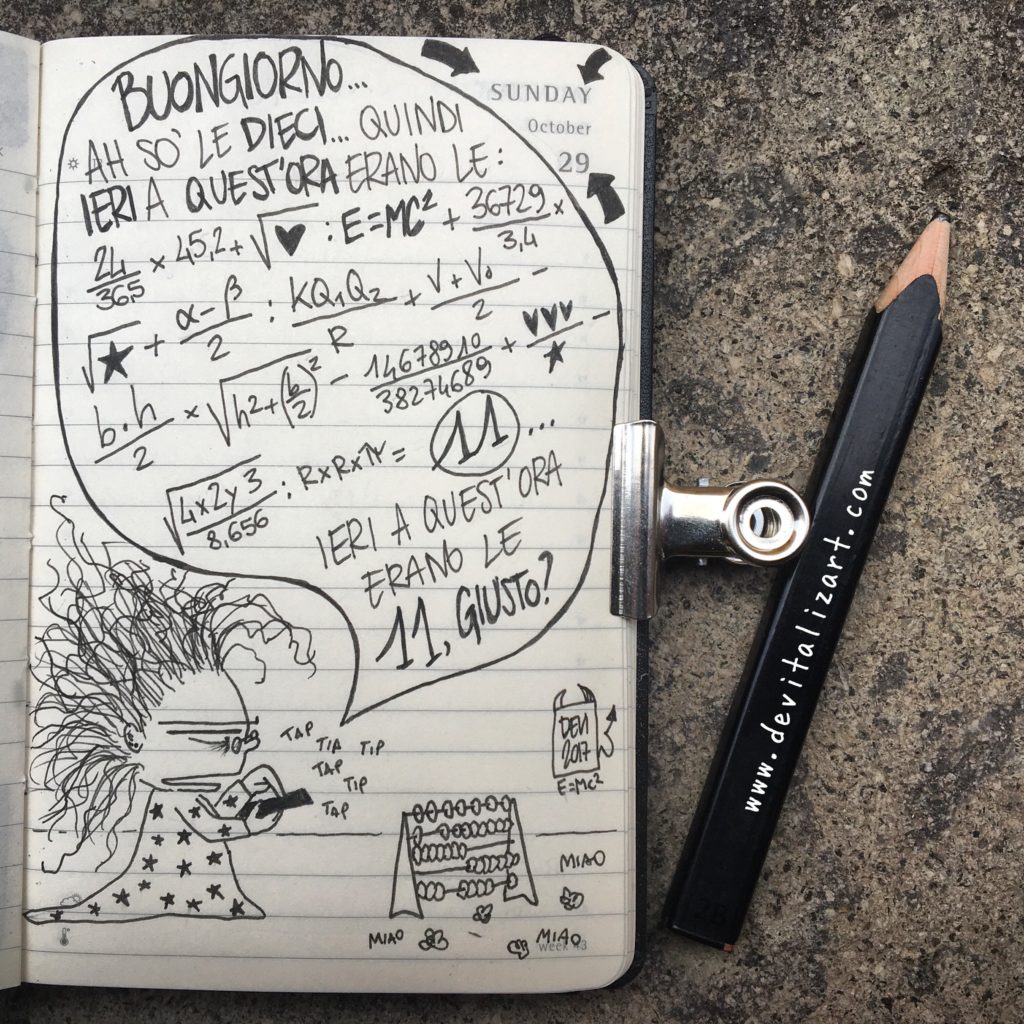 BUONGIORNO...
AH SO' LE DIECI... QUINDI
IERI A QUEST'ORA ERANO LE:
24/365 × 45,2 + √♥ : E=MC² + 36729/3,4 ×
√★ + α-β/2 : KQ₁Q₂/R + V+V₀/2 -
b.h/2 × √h²+(b/2)² - 14678910/38274689 + ♥♥♥/★ -
√4x2y3/8,656 : R×R×π = 11...
IERI A QUEST'ORA
ERANO LE
11, GIUSTO?
SUNDAY
October
29
TAP
TIP TIP
TAP
TIP
TAP
DEVI
2017
E=MC²
MIAO
MIAO
MIAO
week 43
www.devitalizart.com
2B